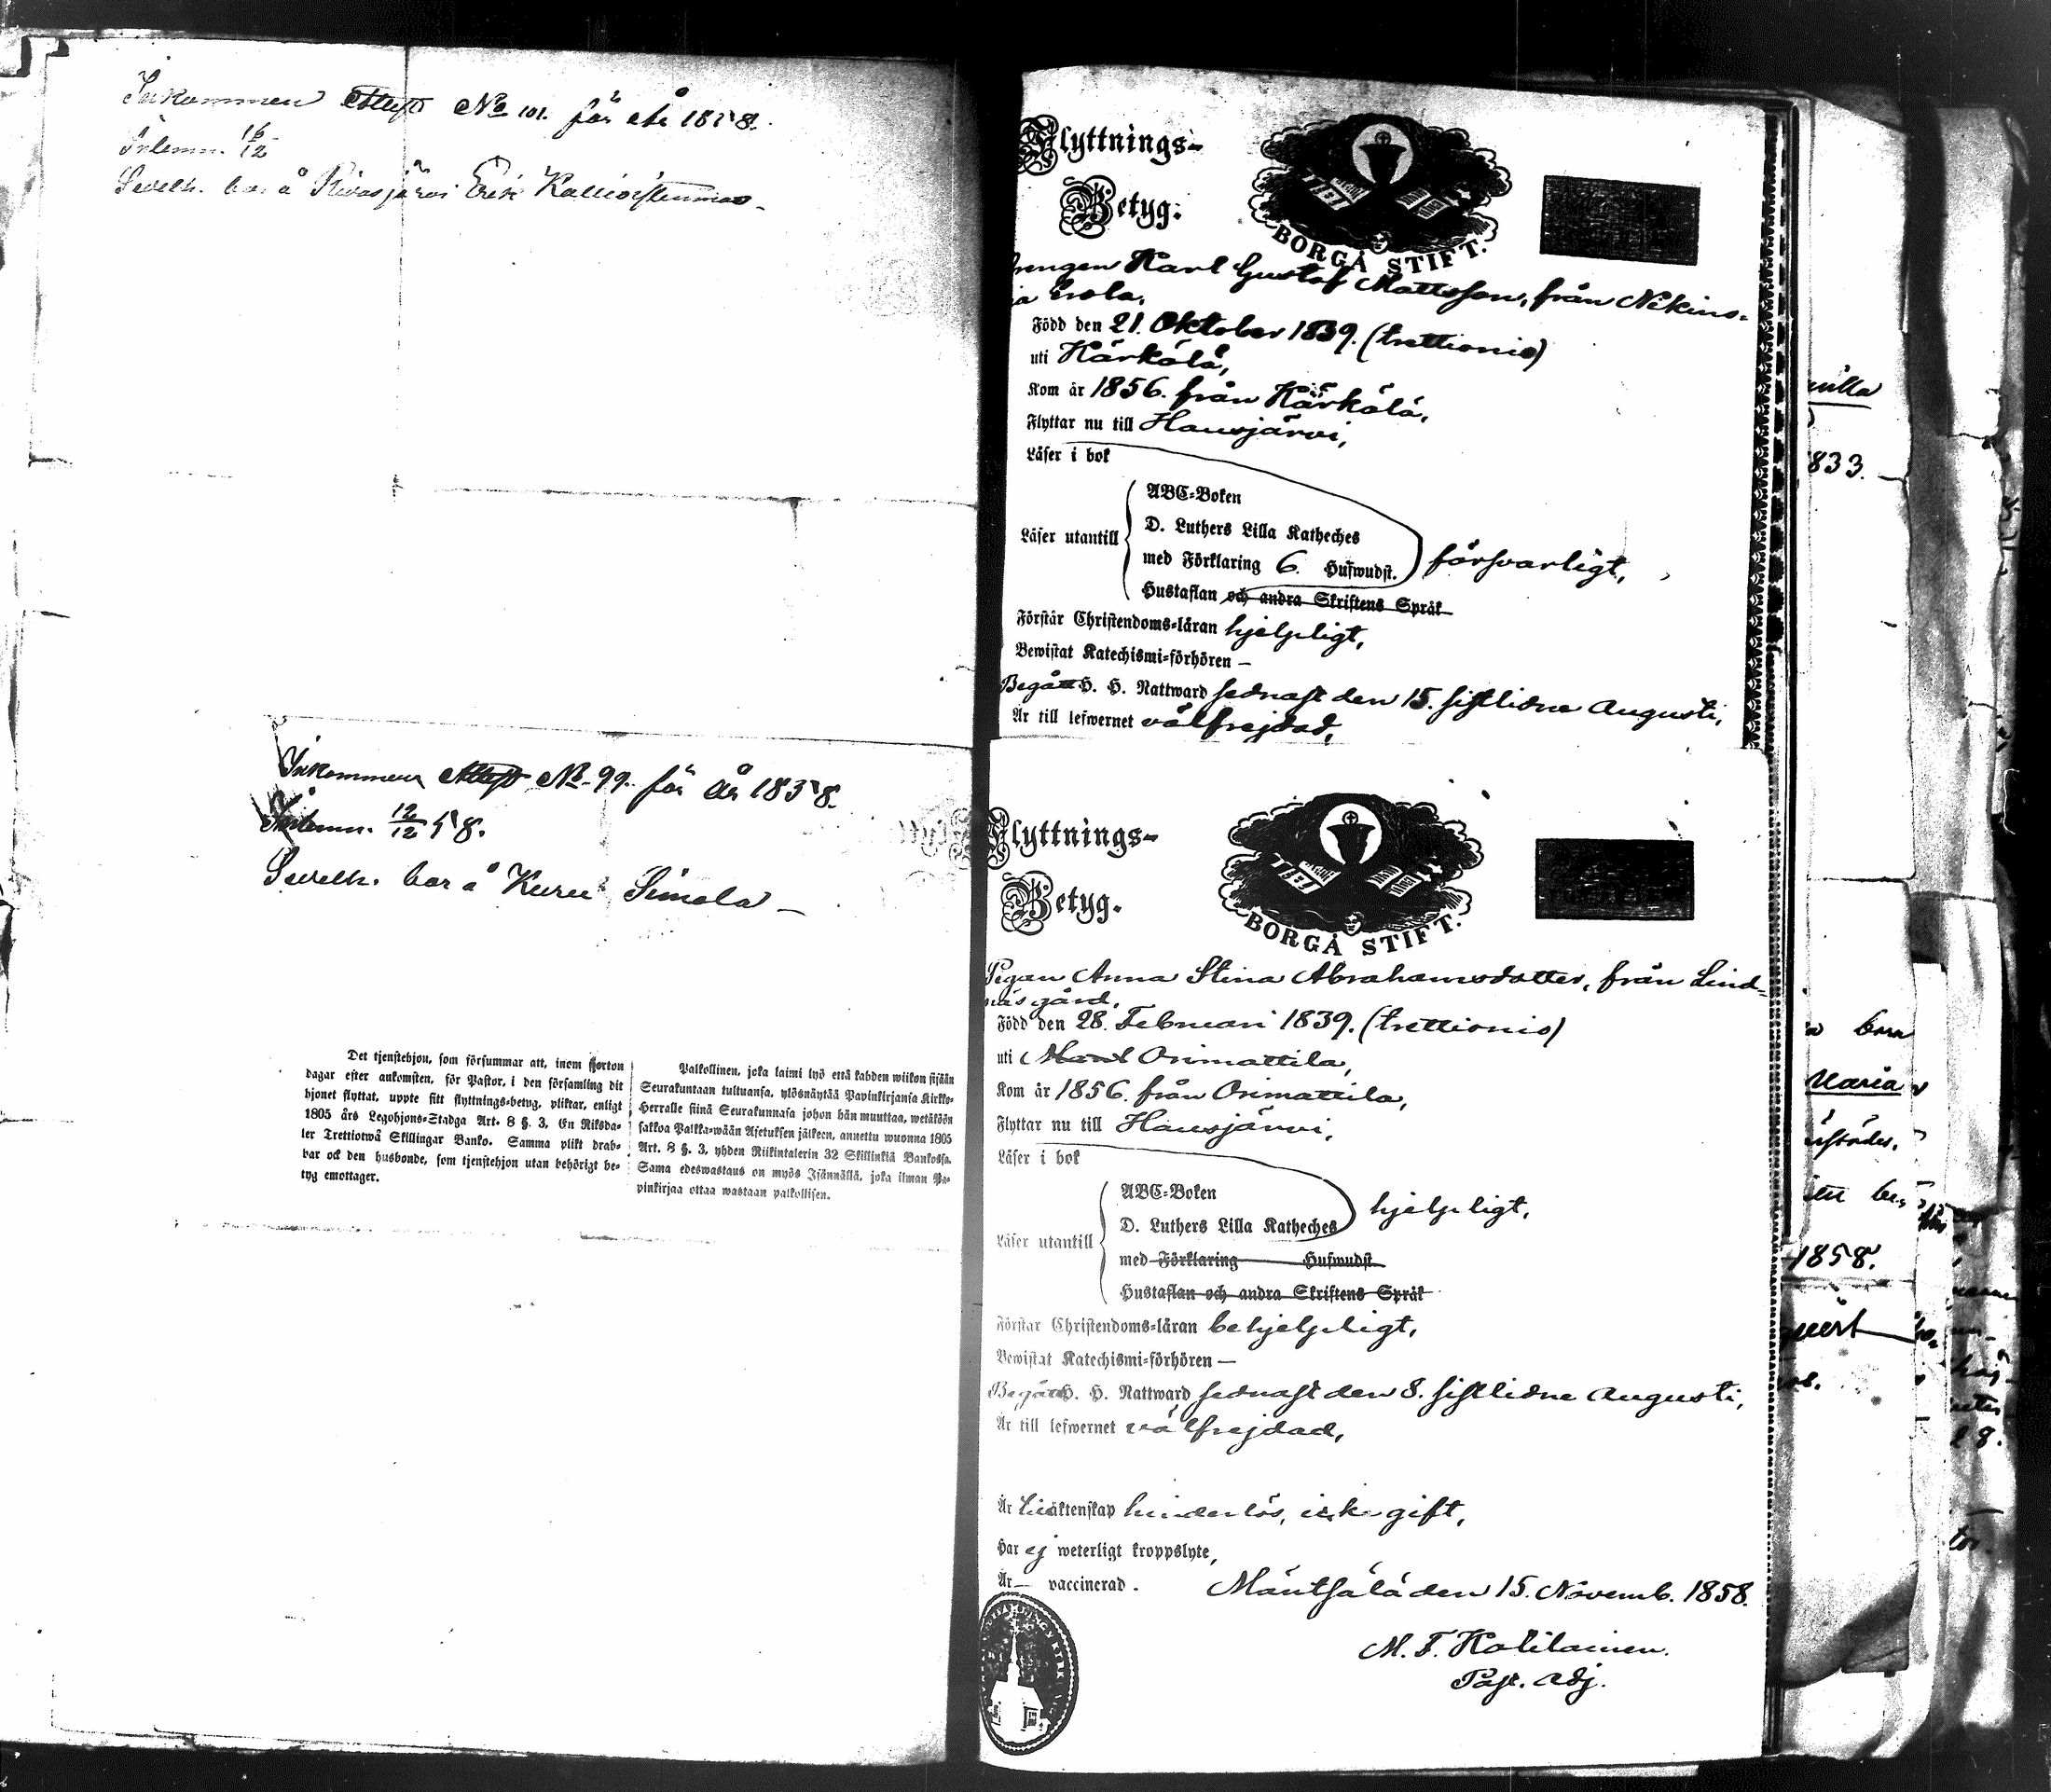 Inkommen Attest No 101. för år 1858.
Inlemn. 16/12
Sedelh. bor å Erik
Inkommen Attest No 99. för år 1858.
Inlemn. 12/12 58.
Sedelh. bor å Kuru Simola
Det tjenstehjon, som försummar att, inom fjorton
dagar efter ankomsten, för Pastor, i den församling dit
hjonet flyttat, uppte sitt flyttnings-betyg, pliktar, enligt
1805 års Legohjons-Stadga Art. 8 §. 3, En Riksda-
ler Trettiotwå Skillingar Banko. Samma plikt drab-
bar ock den husbonde, som tjenstehjon utan behörigt be-
tyg emottager.
Palkollinen, joka laimi lyö että kahden wiikon sisään
Seurakuntaan tultuansa, ylösnäytää Papinkirjansa Kirkko-
Herralle siinä Seurakunnasa johon hän muuttaa, wetäköön
sakkoa Palkka-wään Asetuksen jälkeen, annettu wuonna 1805
Art. 8 §. 3, yhden Riikintalerin 32 Skillinkiä Bankossa.
Sama edeswastaus on myös Isännällä, joka ilman Pa-
pinkirjaa ottaa wastaan palkollisen.
Flyttnings-
Betyg.
BORGÅ STIFT.
Drengen Karl Gustaf Mattsson, från Nikins-
Född den 21. Oktober 1839. (trettionio)
uti Kärkölä,
Kom år 1856. från Kärkölä,
Flyttar nu till Hausjärvi,
Läser i bok
ABC-Boken
D. Luthers Lilla Katheches
Läser utantill med Förklaring 6. Hufwudst. försvarligt,
Hustaflan och andra Skriftens Språk
Förstår Christendoms-läran hjelpligt,
Bewistat Katechismi-förhören —
Begått H. H. Nattward sednast den 15. sistlidne Augusti,
Är till lefwernet välfrejdad,
Flyttnings-
Betyg.
BORGÅ STIFT.
Pigan Anna Stina Abrahamsdotter, från Lind-
näs gård,
Född den 28. Februari 1839. (trettionio)
uti Orimattila,
Kom år 1856. från Orimattila,
Flyttar nu till Hausjärvi,
Läser i bok
ABC-Boken hjelpligt,
D. Luthers Lilla Katheches
Läser utantill
med Förklaring Hufwudst
Hustaflan och andra Skriftens Språk
Förstår Christendoms-läran behjelpligt,
Bewistat Katechismi-förhören —
Begått H. H. Nattward sednast den 8. sistlidne Augusti,
Är till lefwernet välfrejdad,
Är till äktenskap hinderlös, icke gift,
Har ej weterligt kroppslyte,
Är — vaccinerad.
Mäntsälä den 15. Novemb. 1858.
M. F. Kolilainen.
Past. Adj.
833.
Maria
1858.